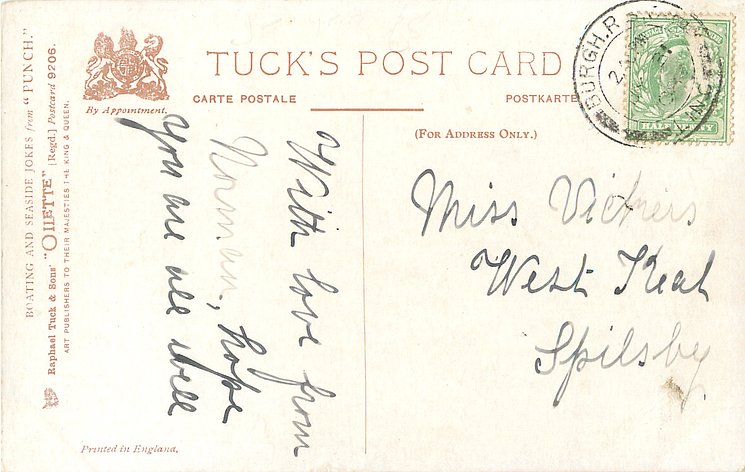 BOATING AND SEASIDE JOKES from "PUNCH."
Raphael Tuck & Sons' "OILETTE" [Regd.] Postcard 9206.
ART PUBLISHERS TO THEIR MAJESTIES THE KING & QUEEN.
By Appointment.
TUCK'S POST CARD
CARTE POSTALE
POSTKARTE
(FOR ADDRESS ONLY.)
BURGH.R
LINC
HALFPENNY
With love from
Norman, hope
You are all well
Miss Vickers
West Keal
Spilsby
Printed in England.